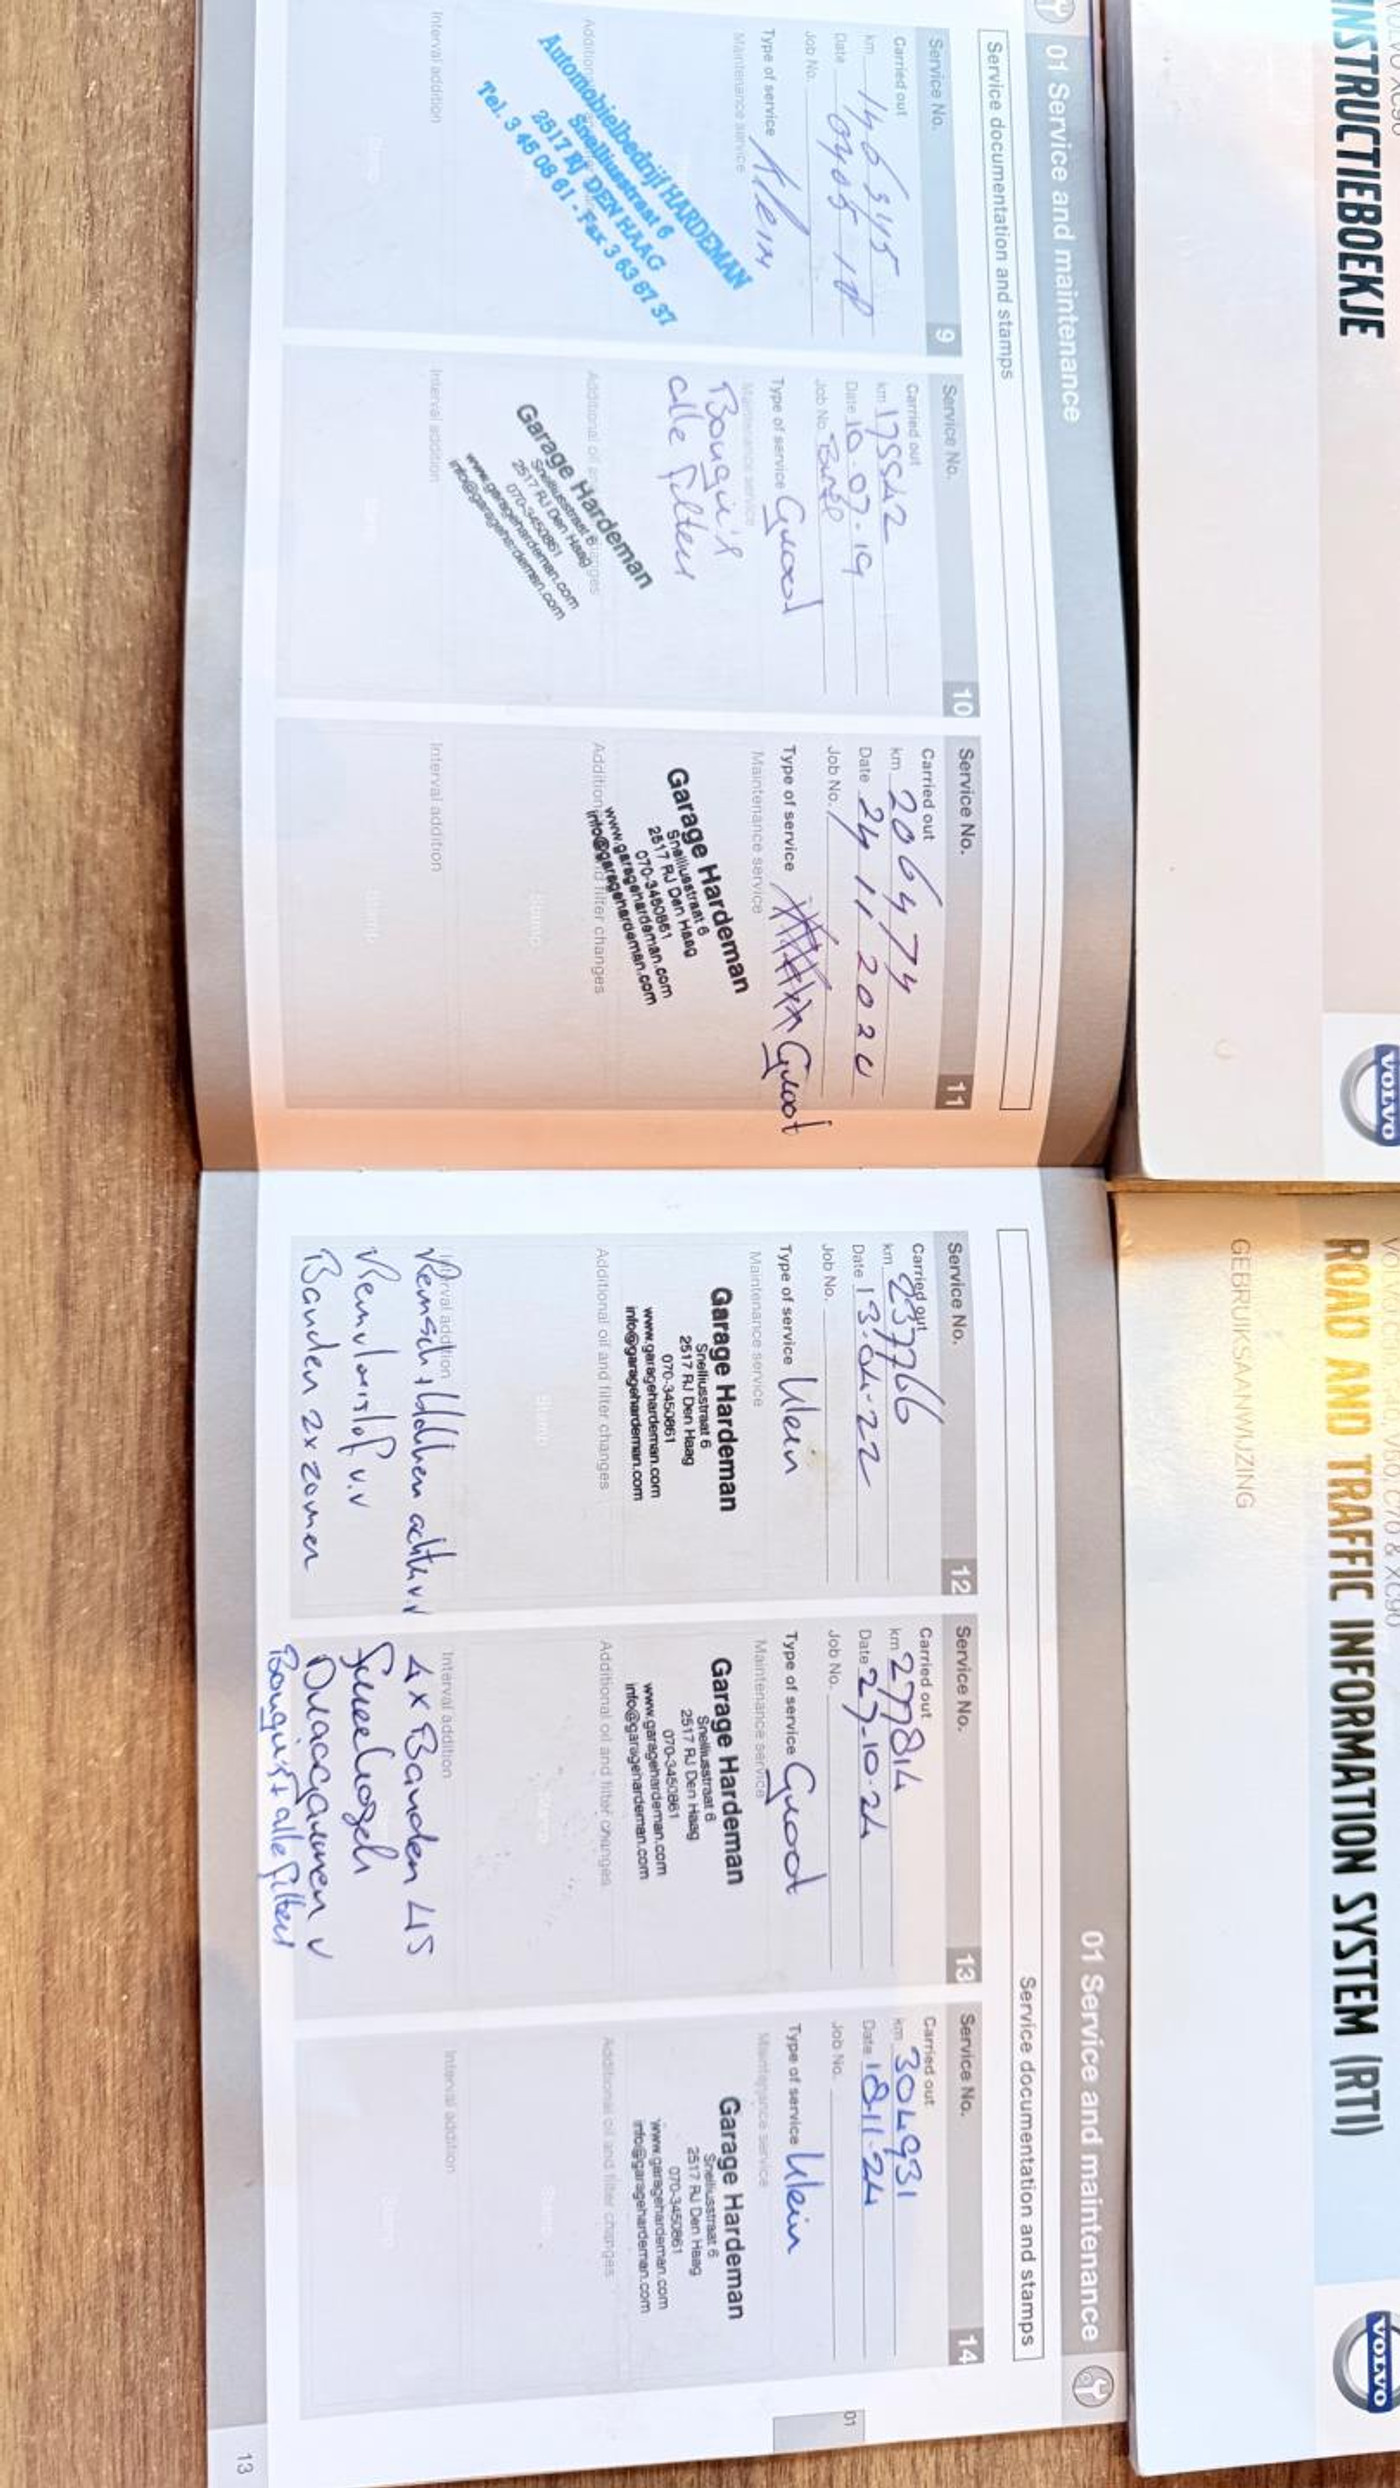 INSTRUCTIEBOEKJE
VOLVO
ROAD AND TRAFFIC INFORMATION SYSTEM (RTI)
GEBRUIKSAANWIJZING
VOLVO
01 Service and maintenance
Service documentation and stamps
Service No.
9
Carried out
km 146345
Date 040518
Job No.
Type of service Klein
Maintenance service
Automobielbedrijf HARDEMAN
Snelliusstraat 6
2517 RJ DEN HAAG
Tel. 3 45 08 61 - Fax 3 63 67 37
Interval addition
Service No.
10
Carried out
km 175542
Date 10.07.19
Job No.
Type of service Groot
Maintenance service
Bougie's
alle filters
Garage Hardeman
Snelliusstraat 6
2517 RJ Den Haag
070-3450861
www.garagehardeman.com
info@garagehardeman.com
Interval addition
Service No.
11
Carried out
km 206474
Date 24 11 2020
Job No.
Type of service Groot
Maintenance service
Garage Hardeman
Snelliusstraat 6
2517 RJ Den Haag
070-3450861
www.garagehardeman.com
info@garagehardeman.com
Additional oil and filter changes
Stamp
Interval addition
Stamp
01 Service and maintenance
Service documentation and stamps
Service No.
12
Carried out
km 237766
Date 13.04.22
Job No.
Type of service Klein
Maintenance service
Garage Hardeman
Snelliusstraat 6
2517 RJ Den Haag
070-3450861
www.garagehardeman.com
info@garagehardeman.com
Additional oil and filter changes
Stamp
Interval addition
Remsch + blokken achter v.v
Remvloeistof v.v
Banden 2x zomer
Service No.
13
Carried out
km 277814
Date 27.10.24
Job No.
Type of service Groot
Maintenance service
Garage Hardeman
Snelliusstraat 6
2517 RJ Den Haag
070-3450861
www.garagehardeman.com
info@garagehardeman.com
Additional oil and filter changes
Stamp
Interval addition
4x Banden 4S
Fuseekogels
Draagarmen v
Bougies + alle filters
Service No.
14
Carried out
km 304931
Date 18.11.24
Job No.
Type of service Klein
Maintenance service
Garage Hardeman
Snelliusstraat 6
2517 RJ Den Haag
070-3450861
www.garagehardeman.com
info@garagehardeman.com
Additional oil and filter changes
Stamp
Interval addition
Stamp
01
13